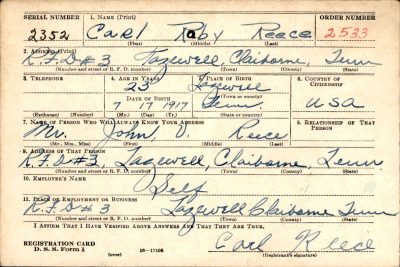 SERIAL NUMBER 1. NAME (Print) ORDER NUMBER
2352 Carl Roby Reece 2533
(First) (Middle) (Last)
2. ADDRESS (Print)
R.F.D #3 Tazewell, Claiborne, Tenn
(Number and street or R. F. D. number) (Town) (County) (State)
3. TELEPHONE 4. AGE IN YEARS 5. PLACE OF BIRTH 6. COUNTRY OF CITIZENSHIP
23 Tazewell
(Town or county)
DATE OF BIRTH
7 17 1917 Tenn USA
(Exchange) (Number) (Mo.) (Day) (Yr.) (State or country)
7. NAME OF PERSON WHO WILL ALWAYS KNOW YOUR ADDRESS 8. RELATIONSHIP OF THAT PERSON
Mr. John Reece
(Mr., Mrs., Miss) (First) (Middle) (Last)
9. ADDRESS OF THAT PERSON
R.F.D #3, Tazewell, Claiborne, Tenn
(Number and street or R. F. D. number) (Town) (County) (State)
10. EMPLOYER'S NAME
Self
11. PLACE OF EMPLOYMENT OR BUSINESS
R.F.D #3 Tazewell Claiborne Tenn
(Number and street or R. F. D. number) (Town) (County) (State)
I AFFIRM THAT I HAVE VERIFIED ABOVE ANSWERS AND THAT THEY ARE TRUE.
REGISTRATION CARD
D. S. S. Form 1 (over) 16—17105 Carl Reece
(Registrant's signature)